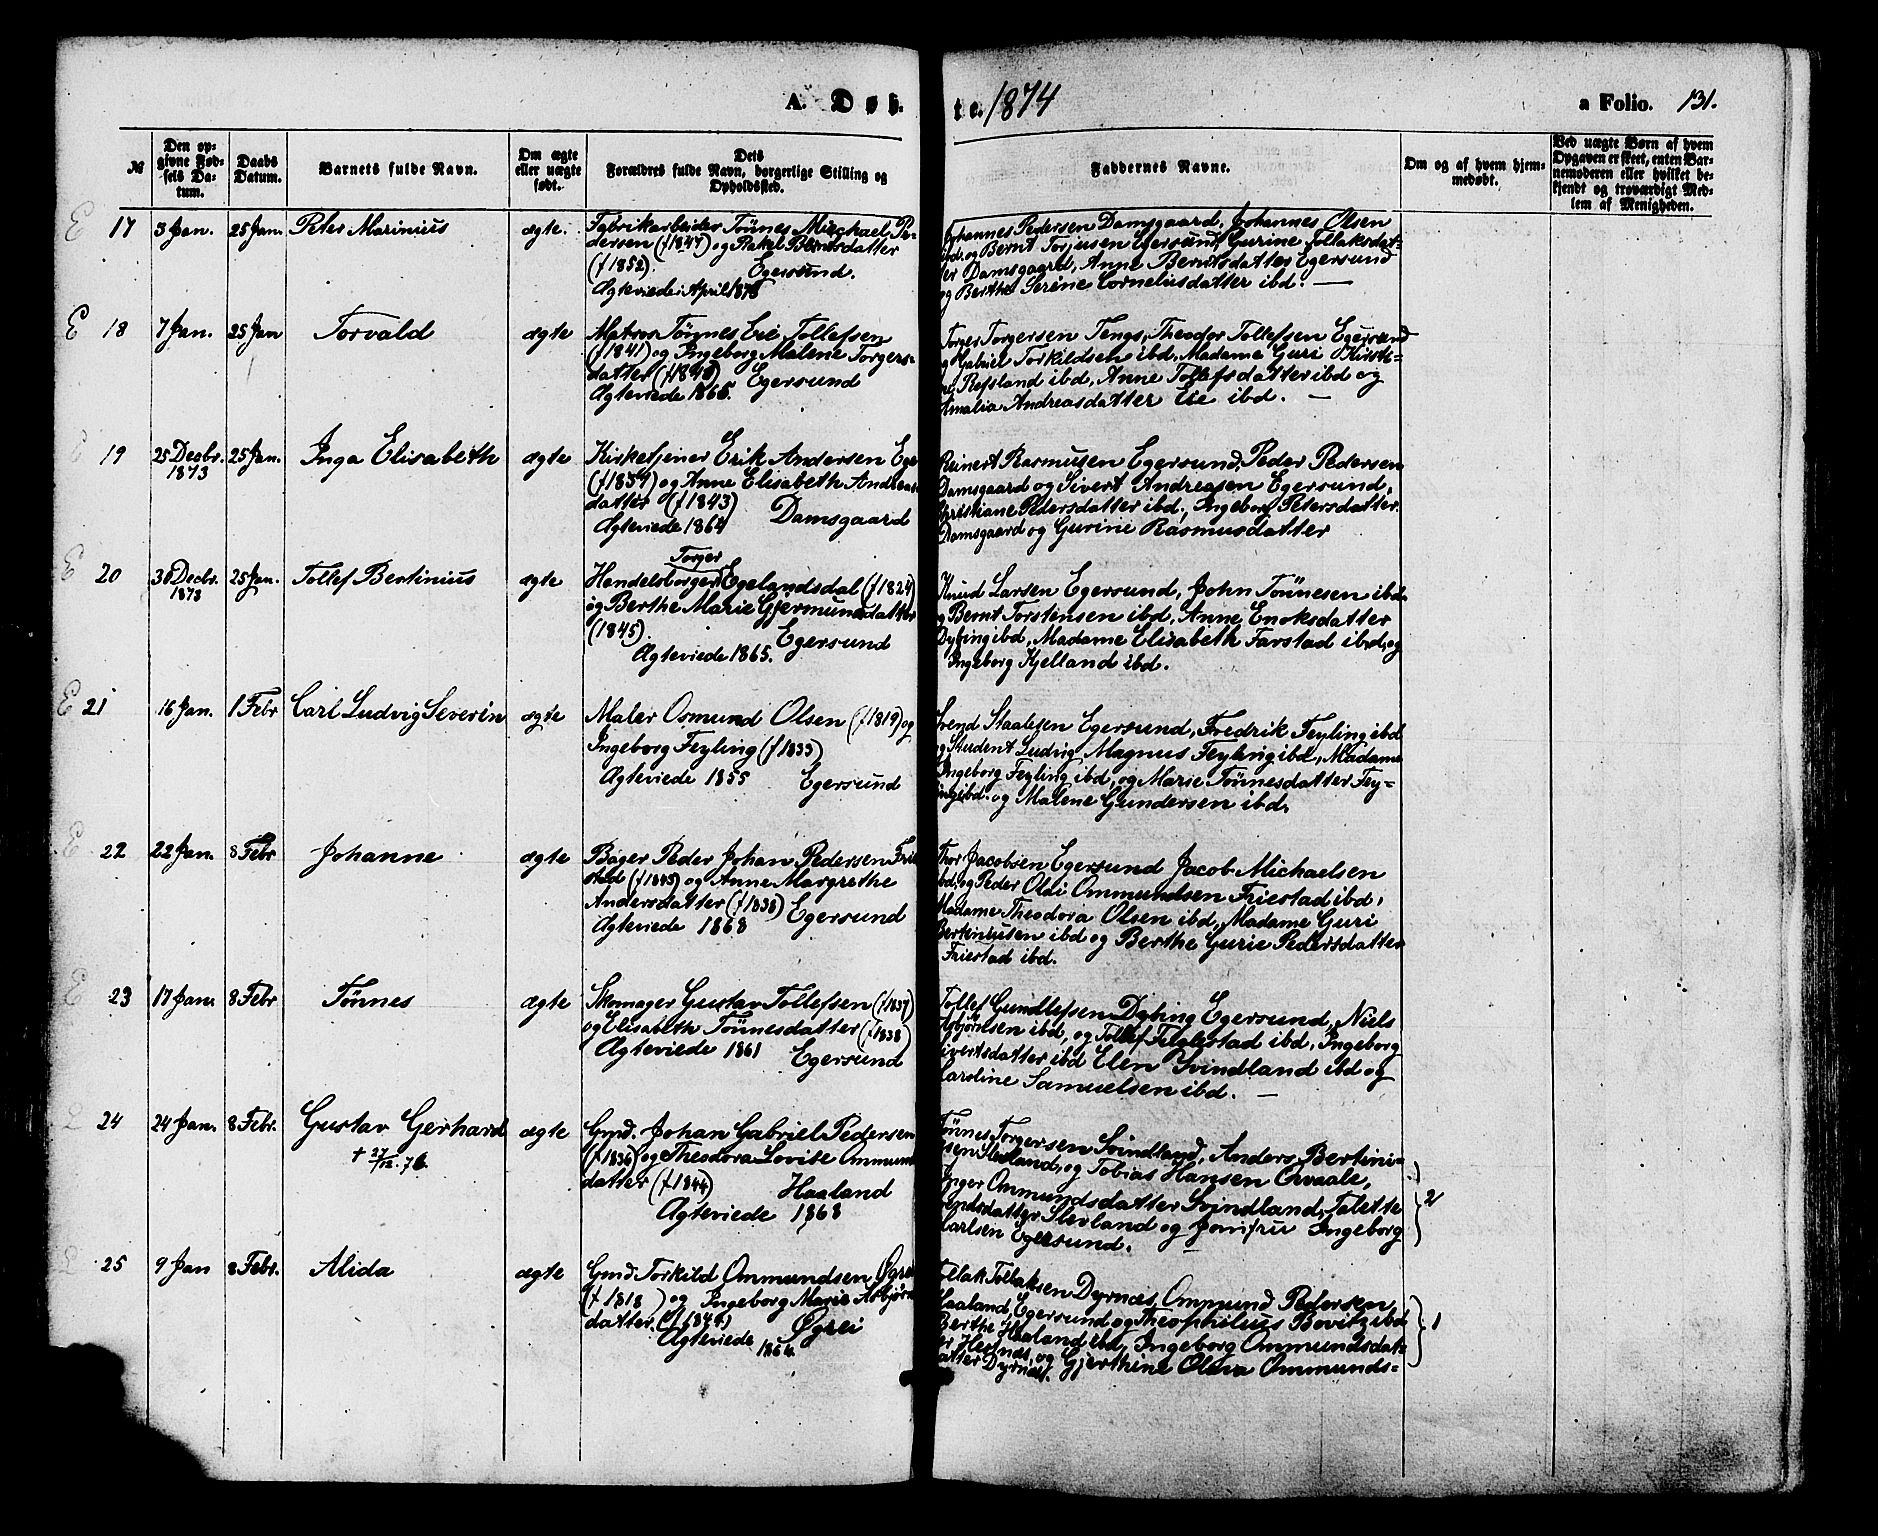 A. D ø b.
t e. 1874
a Folio. 131.
№
Den op-
givne Fød-
sels Da-
tum.
Daabs
Datum.
Barnets fulde Navn.
Om ægte
eller uægte
født.
Dets
Forældres fulde Navn, borgerlige Stilling og
Opholdssted.
Faddernes Navne.
Om og af hvem hjem-
medøbt.
Ved uægte Børn af hvem
Opgaven er skeet, enten Bar-
nemoderen eller hvilket be-
kjendt og troværdigt Med-
lem af Menigheden.
E 17 3 Jan. 25 Jan. Peter Marinius ægte.
Fabrikarbeider Tönnes Michael Pe-
dersen (f 1847) og Rakel Berntsdatter
(f 1852). Egersund.
Ægteviede i April 1873
Johannes Pedersen Damsgaard, Johannes Olsen
ibd. og Bernt Torjusen Egersund, Gurine Tollaksdat-
ter Damsgaard, Anne Berntsdatter Egersund
og Berthe Serine Cornelusdatter ibd. —
E 18 7 Jan. 25 Jan Torvald ægte
Matros Tönnes Eie Tollefsen
(f 1841) og Ingeborg Malene Torgers-
datter (f 1840) Egersund
Ægteviede 1866.
Torger Torgersen Tengs, Theodor Tollefsen Egersund
og Gabriel Torkildsen ibd. Madame Guri Kirsti-
ne Refsland ibd, Anne Tollefsdatter ibd og
Amalia Andreasdatter Eie ibd. —
E 19 25 Decbr. 1873 25 Jan. Inga Elisabeth ægte
Kirketjener Erik Andersen Ege
(f 1834) og Anne Elisabeth Andreas-
datter (f 1843) Damsgaard
Ægteviede 1864
Reinert Rasmusen Egersund, Peder Pedersen
Damsgaard og Sivert Andreasen Egersund,
Christiane Pedersdatter ibd., Ingeborg Petersdatter
Damsgaard og Gurine Rasmusdatter
E 20 30 Decbr. 1873 25 Jan. Tollef Bertinius ægte
Torger
Handelsborger Egelandsdal (f 1824)
og Berthe Marie Gjermundsdatter
(1845). Egersund
Ægteviede 1865.
Knud Larsen Egersund, John Tönnesen ibd.
og Bernt Torstensen ibd, Anne Enoksdatter
Dybing ibd, Madame Elisabeth Farstad ibd, og
Ingeborg Kjelland ibd.
E 21 16 Jan. 1 Febr Carl Ludvig Severin ægte
Maler Osmund Olsen (f 1819) og
Ingeborg Feyling (f 1833)
Ægteviede 1855 Egersund
Svend Staalesen Egersund, Fredrik Feyling ibd
og Student Ludvig Magnus Feyling ibd, Madame
Ingeborg Feyling ibd, og Marie Tönnesdatter Fey-
ling ibd. og Malene Gundersen ibd.
E 22 22 Jan. 8 Febr Johanne ægte
Bager Peder Johan Pedersen Frie
stad (f 1845) og Anne Margrethe
Andersdatter (f 1838) Egersund
Ægteviede 1868
Thor Jacobsen Egersund Jacob Michaelsen
ibd, og Peder Olai Ommundsen Friestad ibd,
Madame Theodora Olsen ibd, Madame Guri
Bertiniusen ibd og Berthe Gurie Pedersdatter
Friestad ibd.
E 23 17 Jan. 8 Febr Tönnes ægte
Skomager Gustav Tollefsen (f 1837)
og Elisabeth Tönnesdatter (f 1838)
Ægteviede 1861 Egersund
Tollef Gundlefsen Dybing Egersund, Niels
Asbjörnsen ibd, og Tollef Fuglestad ibd, Ingeborg
Sivertsdatter ibd Elen Svindland ibd og
Karoline Samuelsen ibd. —
L 24 24 Jan. 8 Febr. Gustav Gerhard ægte
+ 27/12. 76
Gmd. Johan Gabriel Pedersen
(f 1836) og Theodora Lovise Ommund
datter (f 1844) Haaland
Ægteviede 1868
Tönnes Torgersen Svindland, Anders Bertini-
usen Sleveland, og Tobias Hansen Orvaale,
Inger Ommundsdatter Svindland, Talette
datter Sleveland og Jomfru Ingeborg
Carlsen Egersund. 2
L 25 9 Jan 8 Febr. Alida ægte
Gmd. Torkild Ommundsen Øgrei
(f 1818) og Ingeborg Marie Asbjörns
datter. (f 1844) Øgrei
Ægteviede 1864
Tollak Tollaksen Dyrnæs, Ommund Pedersen
Haaland, Egersund og Theophilius Bovitz ibd
Berthe Haaland ibd, Ingeborg Ommundsdat-
ter Hesnes, og Gjerthine Olava Ommunds-
datter Dyrnæs. 1